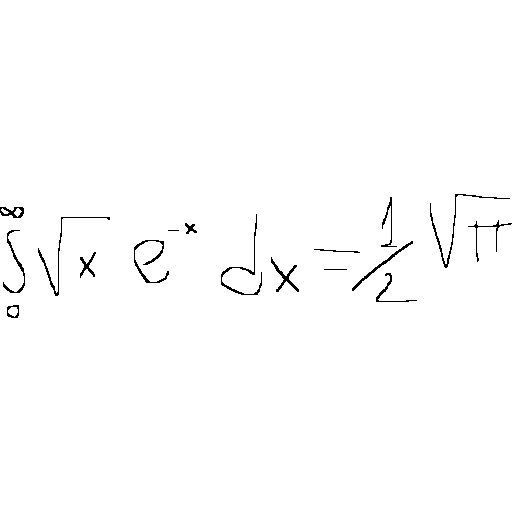 ∫₀^∞ √x e^{-x} dx = 1/2 √π